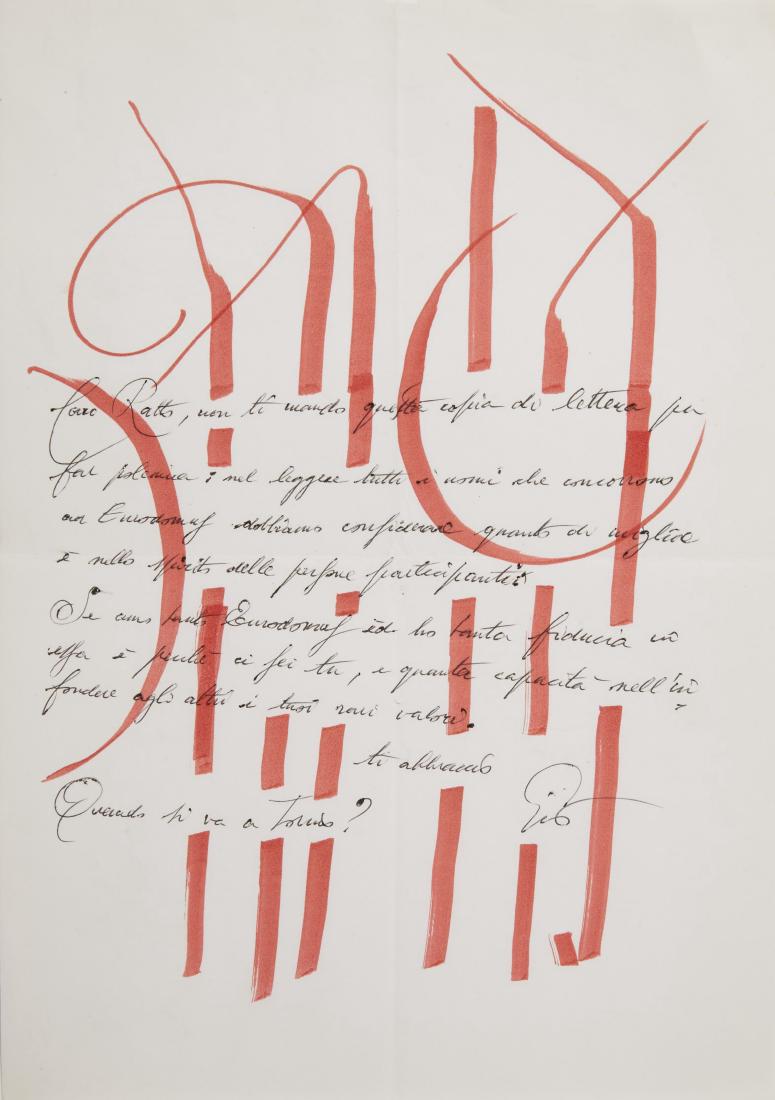 Caro Ratto, non ti mando questa copia di lettera per
far polemica: nel leggere tutti i nomi che concorrono
ad Eurodomus dobbiamo considerare quanto di migliore
è nello spirito delle persone partecipanti.
Se amo tanto Eurodomus ed ho tanta fiducia in
essa è perchè ci sei tu, e quanta capacità nell'in
fondere agli altri i tuoi rari valori.
ti abbraccio
Quando si va a Torino? Gio